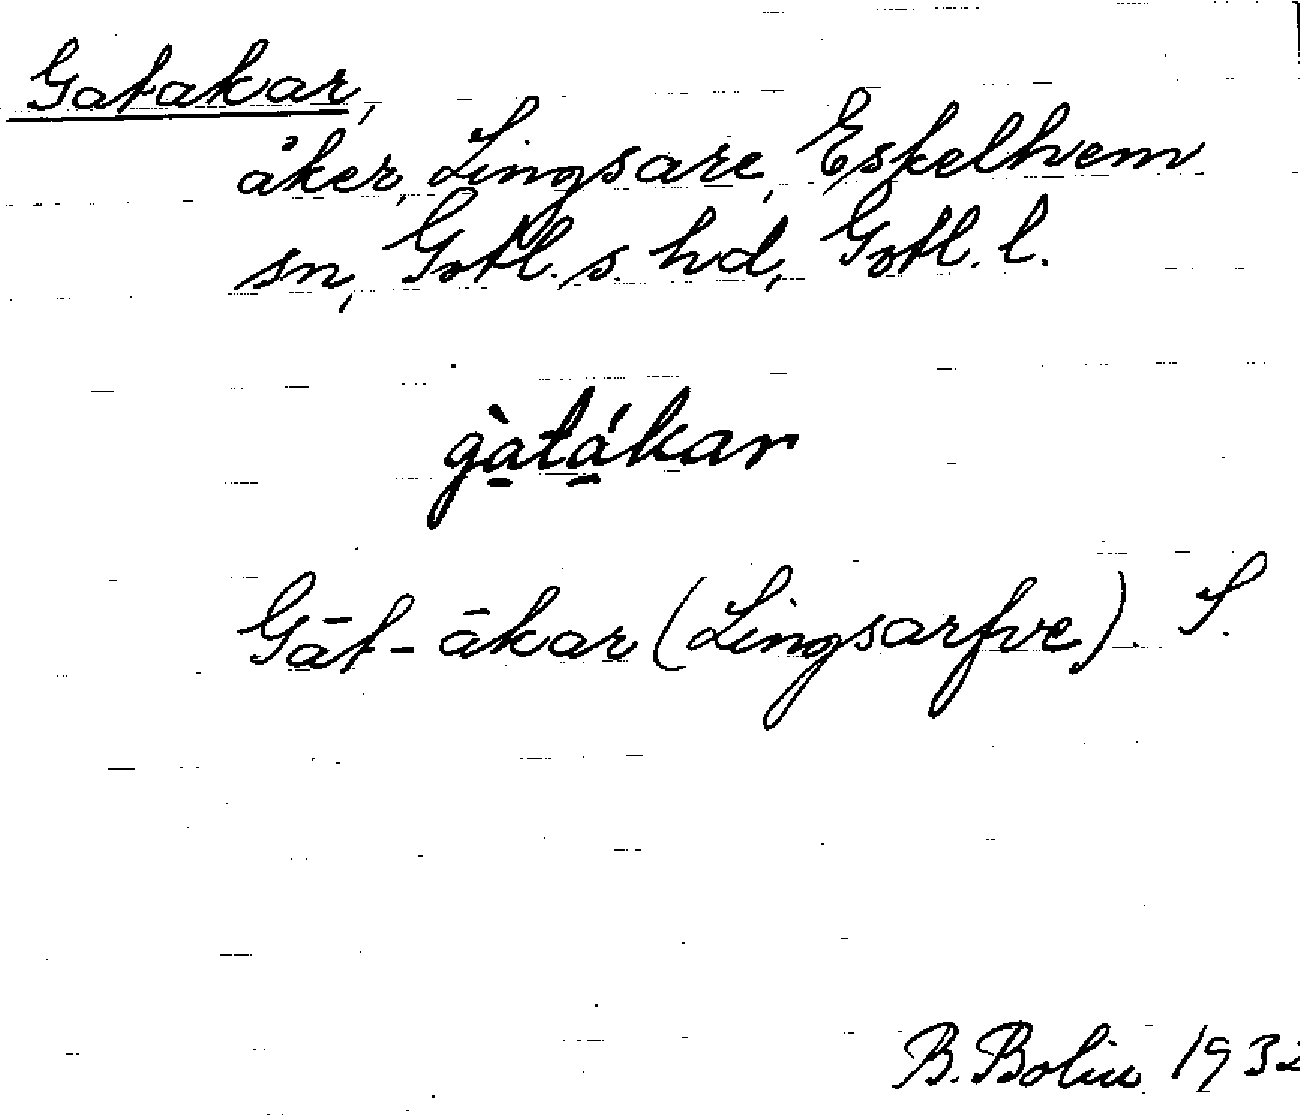 Gatakar,
åker, Lingsare, Eskelhem
sn, Gotl. s. hd, Gotl. l.
gà̱tá̱kar
Gāt-ākar (Lingsarfve). S.
B. Bolin 1932